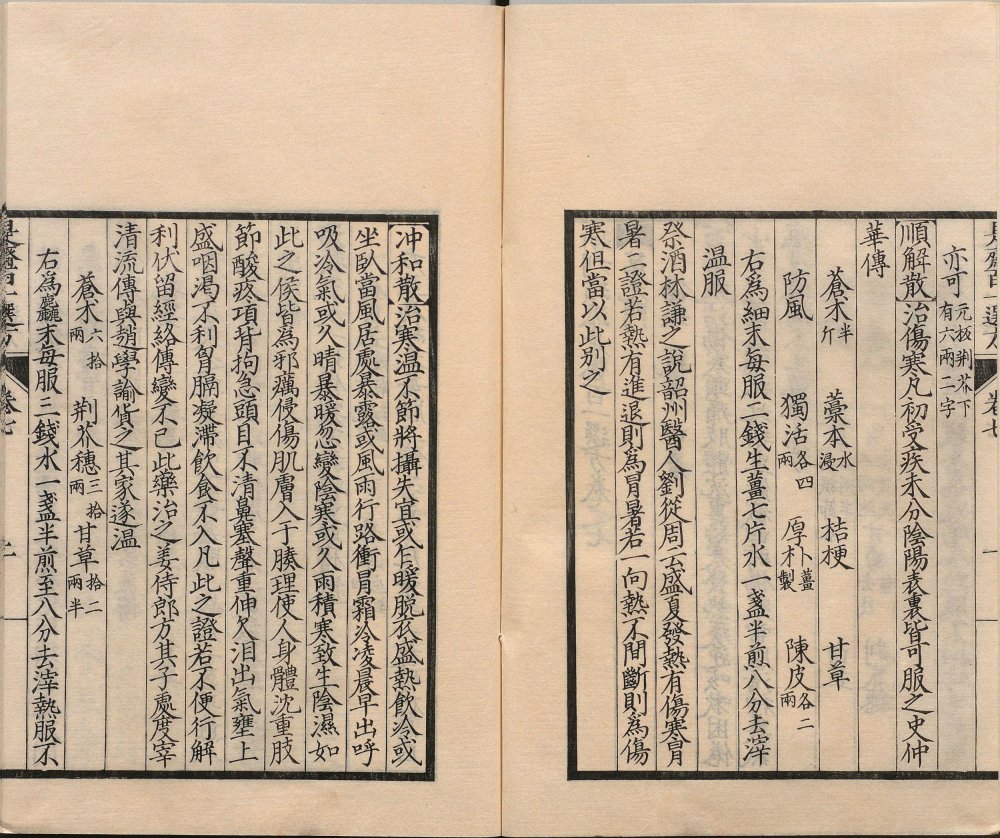 是齋百一選方 卷七
亦可元板荆芥下有六兩二字
順解散治傷寒凡初受疾未分陰陽表裏皆可服之史仲
華傳
蒼朮半斤 藁本水浸 桔梗 甘草
防風 獨活各四兩 厚朴薑製 陳皮各二兩
右爲細末每服二錢生薑七片水一盞半煎八分去滓
温服
祭酒林謙之說韶州醫人劉從周云盛夏發熱有傷寒冐
暑二證若熱有進退則爲冒暑若一向熱不間斷則爲傷
寒但當以此别之
冲和散治寒温不節將攝失宜或乍暖脱衣盛熱飲冷或
坐臥當風居處暴露或風雨行路衝冒霜冷凌晨早出呼
吸冷氣或久晴暴暖忽變陰寒或久雨積寒致生陰濕如
此之侯皆爲邪癘侵傷肌膚入于腠理使人身體沈重肢
節酸疼項背拘急頭目不清鼻塞聲重伸欠泪出氣壅上
盛咽渴不利胷膈凝滯飲食不入凡此之證若不便行解
利伏留經絡傳變不已此藥治之姜侍郎方其子處度宰
清流傳與趙學諭貨之其家遂温
蒼朮六拾兩 荆芥穗三拾兩 甘草拾二兩半
右爲麤末每服三錢水一盞半煎至八分去滓熱服不
是齋百一選方 卷七